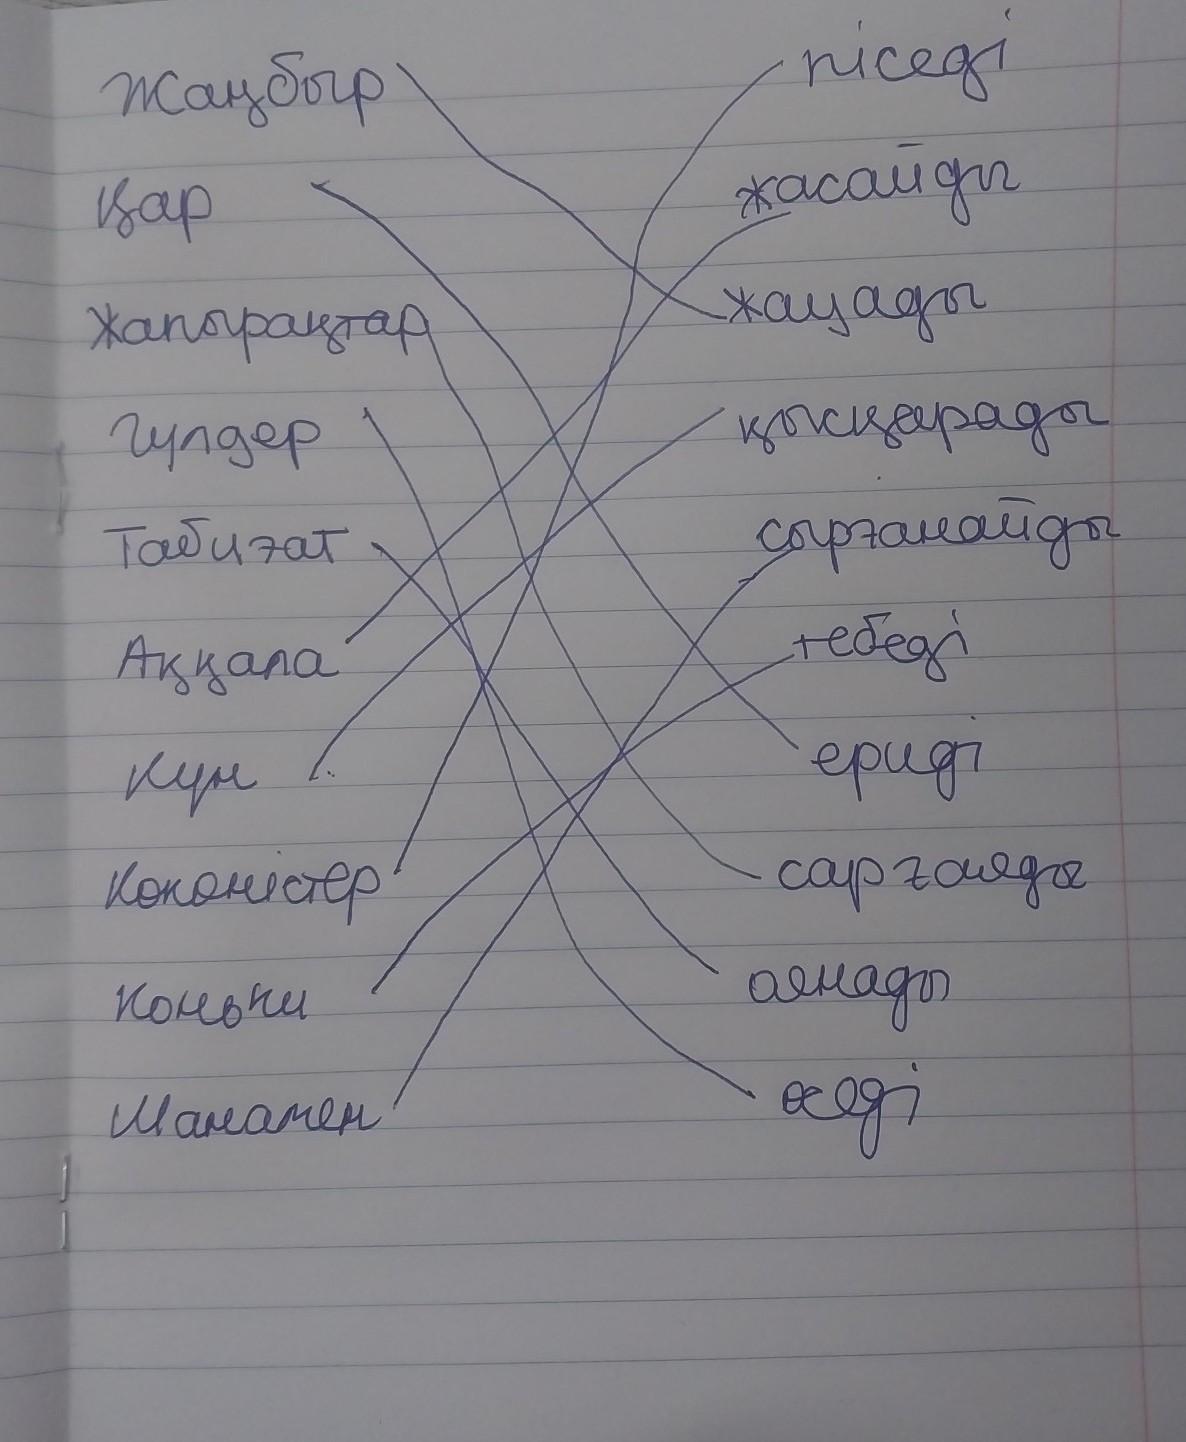 Жаңбыр піседі
Қар жасайды
Жапырақтар жауады
Гүлдер қысқарады
Табиғат сырғанайды
Аққала тебеді
Күн ериді
Көкөністер сарғаяды
Коньки оянады
Шанамен өседі